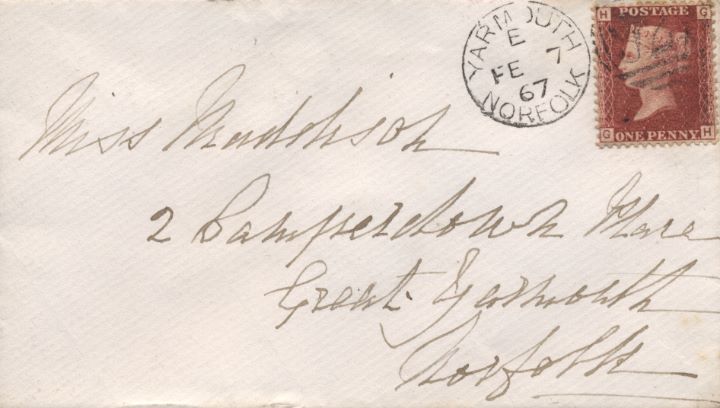 YARMOUTH
E
FE 7
67
NORFOLK
H POSTAGE G
G ONE PENNY H
Miss Maddison
2 Camperdown Place
Great Yarmouth
Norfolk